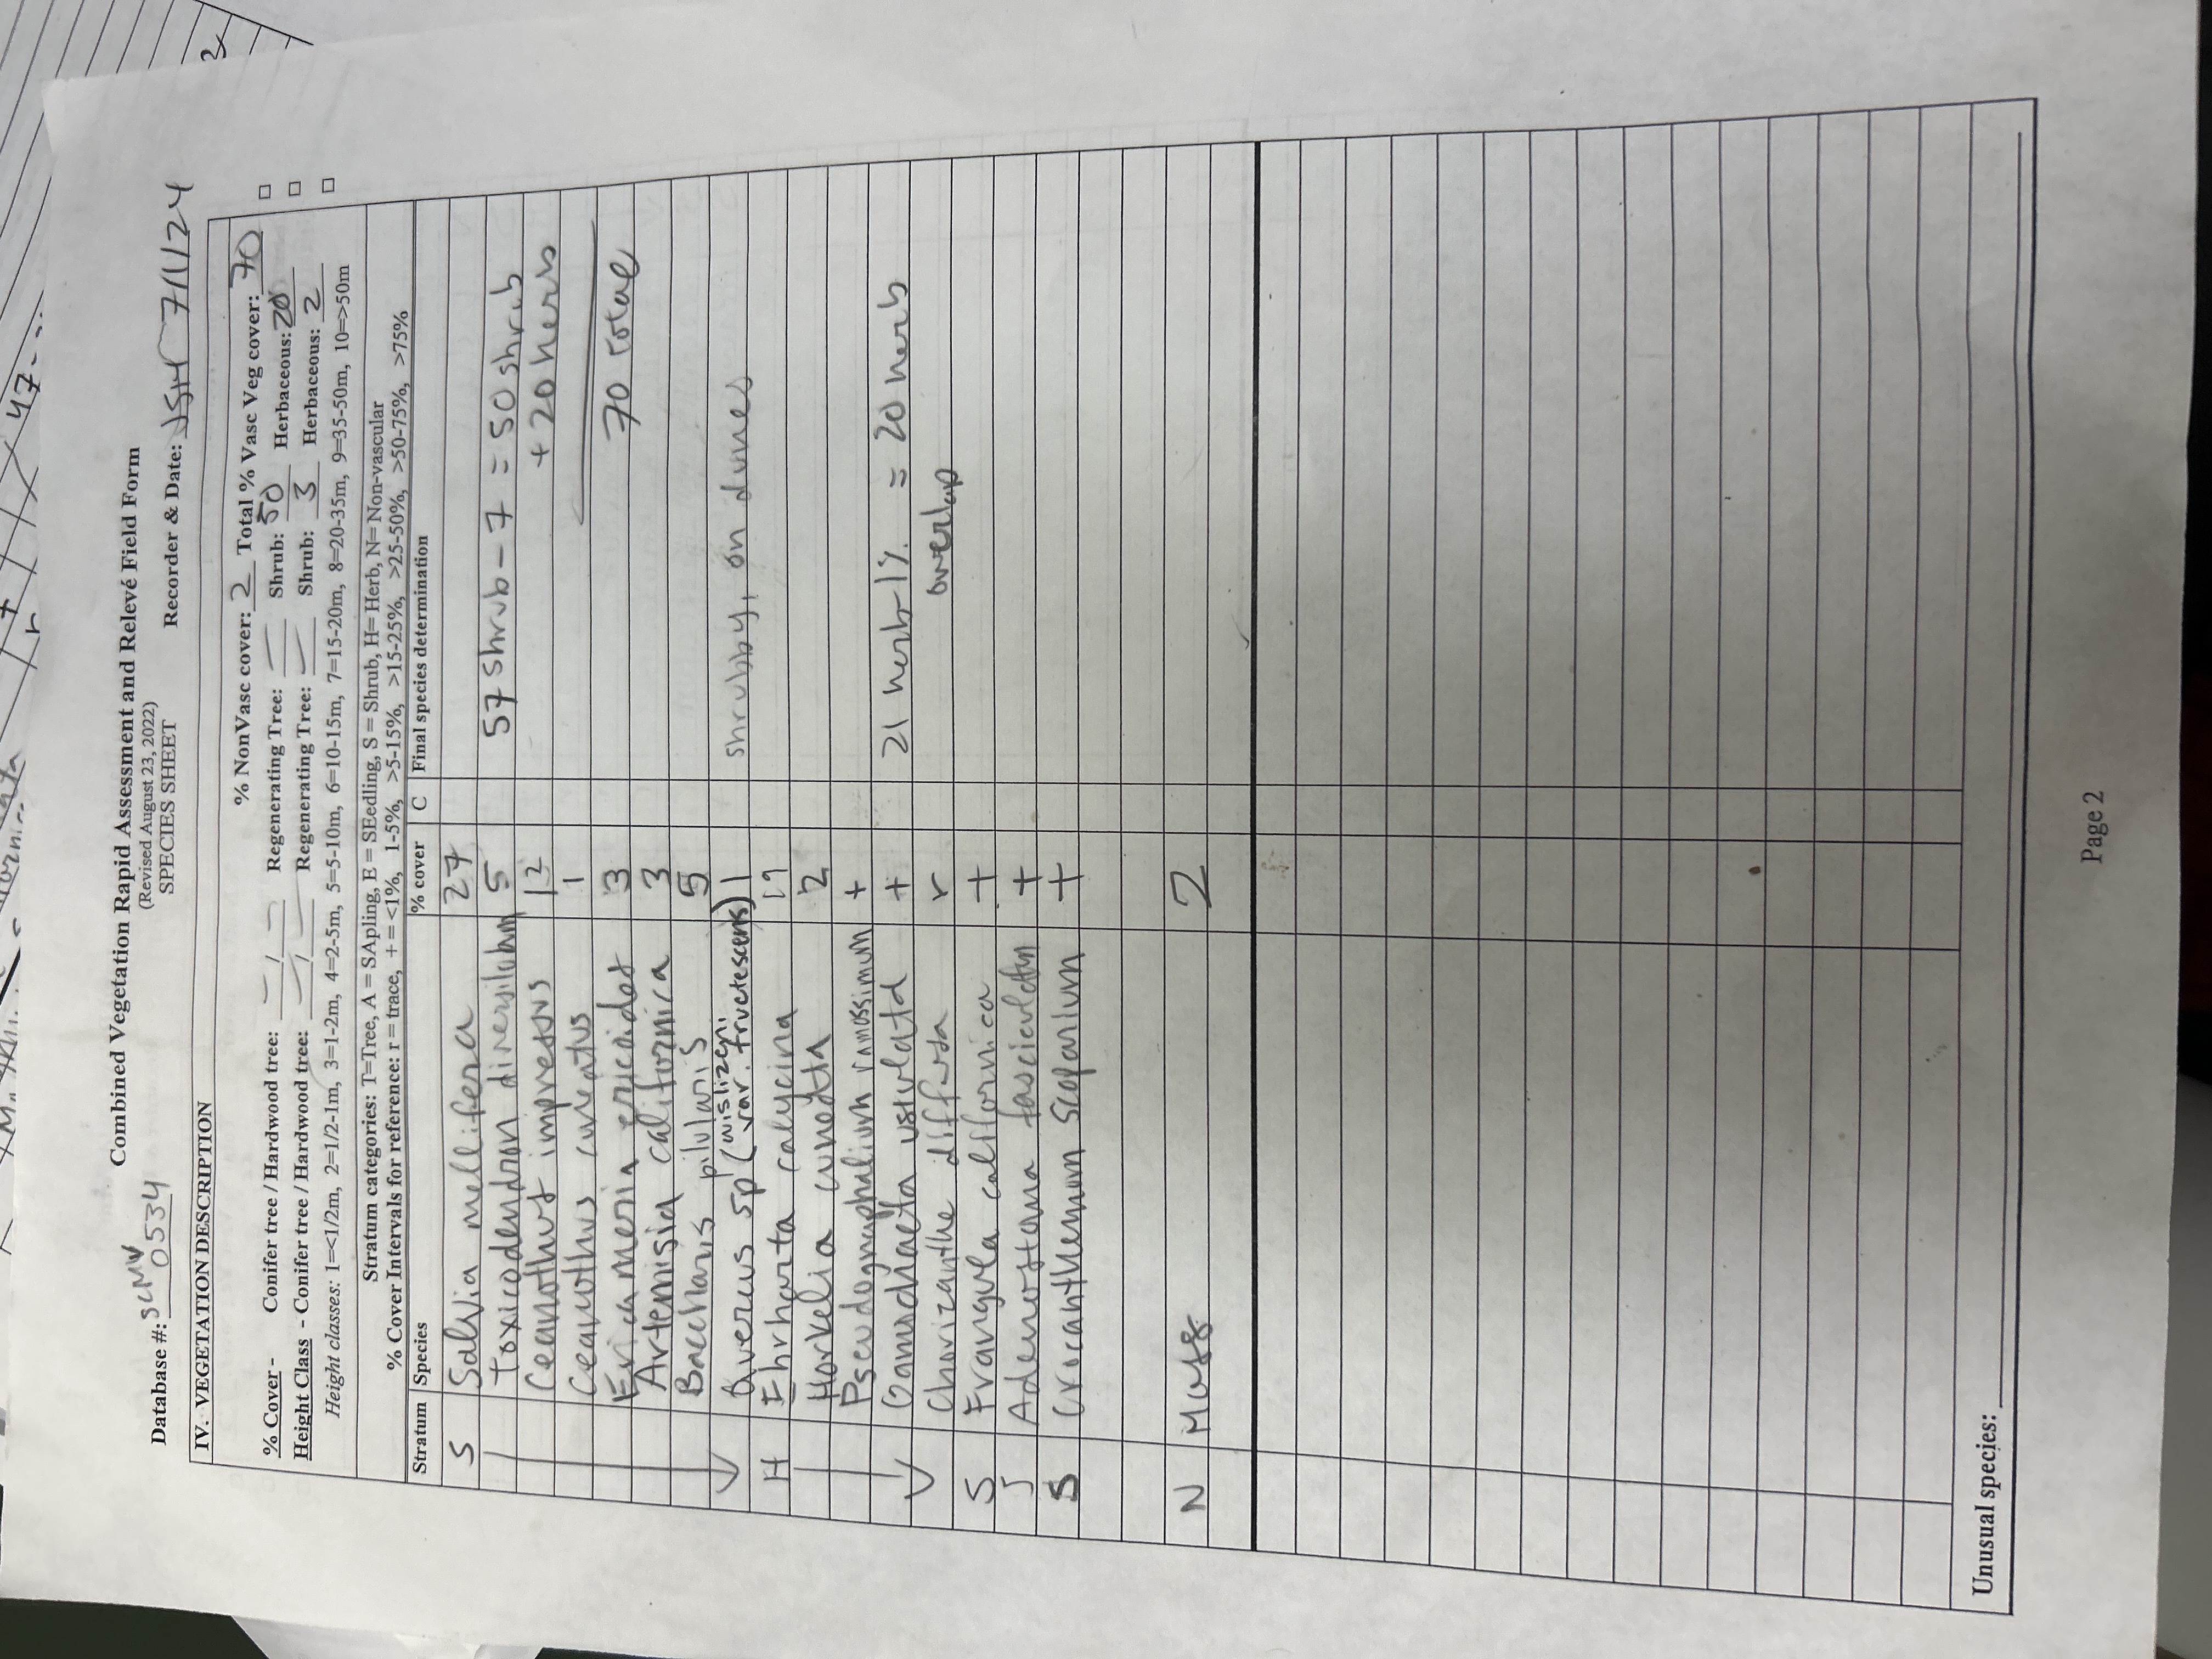 Combined Vegetation Rapid Assessment and Relevé Field Form
(Revised August 23, 2022)
SPECIES SHEET
Database #: SCMV 0534 Recorder & Date: JSH 7/1/24
IV. VEGETATION DESCRIPTION
% NonVasc cover: 2 Total % Vasc Veg cover: 70
% Cover - Conifer tree / Hardwood tree: — / — Regenerating Tree: — Shrub: 50 Herbaceous: 20
Height Class - Conifer tree / Hardwood tree: — / — Regenerating Tree: — Shrub: 3 Herbaceous: 2
Height classes: 1=<1/2m, 2=1/2-1m, 3=1-2m, 4=2-5m, 5=5-10m, 6=10-15m, 7=15-20m, 8=20-35m, 9=35-50m, 10=>50m
Stratum categories: T=Tree, A = SApling, E = SEedling, S = Shrub, H= Herb, N= Non-vascular
% Cover Intervals for reference: r = trace, + = <1%, 1-5%, >5-15%, >15-25%, >25-50%, >50-75%, >75%
Stratum Species % cover C Final species determination
S Salvia mellifera 27
Toxicodendron diversilobum 5 57 shrub - 7 = 50 shrub
Ceanothus impressus 12 + 20 herb
Ceanothus cuneatus 1
Ericameria ericoides 3 70 total
Artemisia californica 3
Baccharis pilularis 5
Quercus sp (wislizeni var. fructescens) 1 shrubby, on dunes
H Ehrharta calycina 19
Horkelia cuneata 2
Pseudognaphalium ramossimum +
Camochaeta ustulata + 21 herb-1% = 20 herb
Chorizanthe diffusa r overlap
S Frangula californica +
S Adenostoma fasciculatum +
S Crocanthemum scoparium +
N Moss 2
Unusual species:
Page 2